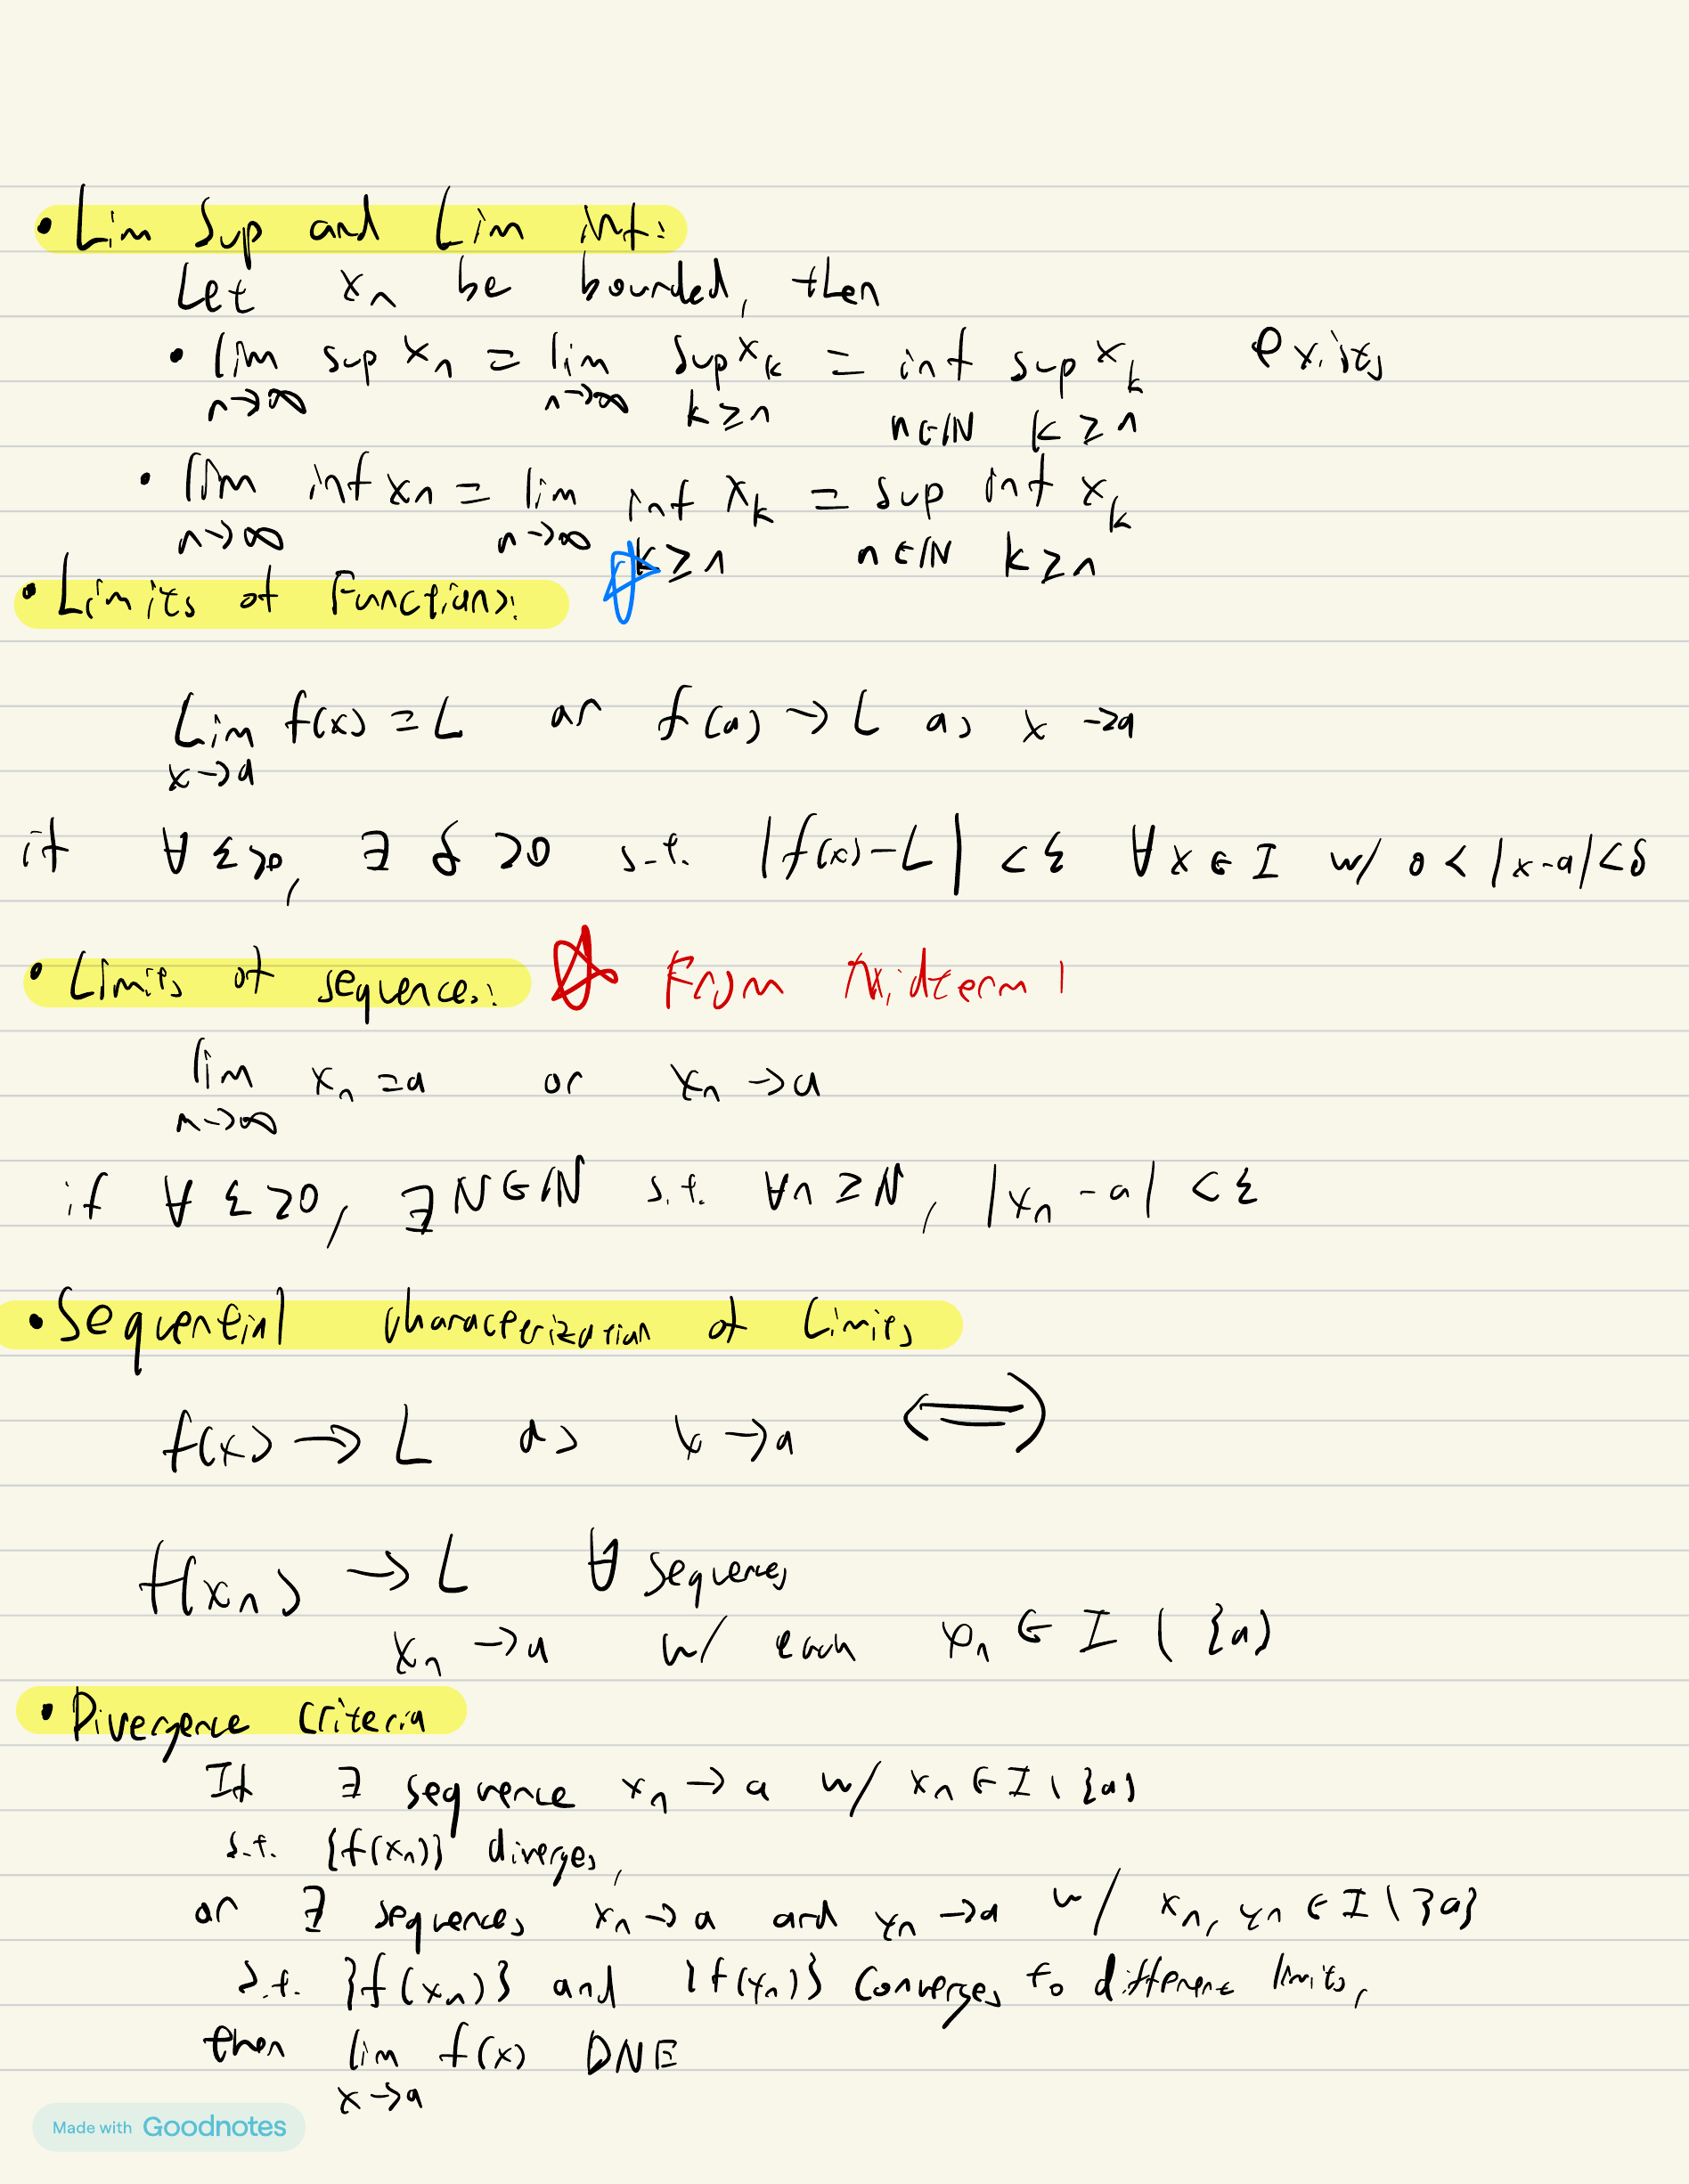 • Lim Sup and Lim inf:
Let xₙ be bounded, then
• lim sup xₙ = lim sup xₖ = inf sup xₖ exists
n→∞ n→∞ k≥n n∈ℕ k≥n
• lim inf xₙ = lim inf xₖ = sup inf xₖ
n→∞ n→∞ k≥n n∈ℕ k≥n
• Limits of Functions:
Lim f(x) = L or f(a) → L as x → a
x→a
if ∀ ε>0, ∃ δ >0 s.t. |f(x)-L| < ε ∀x ∈ I w/ 0 < |x-a| < δ
• Limits of sequences: From Midterm 1
lim xₙ = a or xₙ → a
n→∞
if ∀ ε >0, ∃ N∈ℕ s.t. ∀n ≥ N, |xₙ - a| < ε
• Sequential characterization of Limits
f(x) → L as x → a ⟺
f(xₙ) → L ∀ sequences
xₙ → a w/ each xₙ ∈ I \ {a}
• Divergence Criteria
If ∃ sequence xₙ → a w/ xₙ ∈ I \ {a}
s.t. {f(xₙ)} diverges,
or ∃ sequences xₙ → a and yₙ → a w/ xₙ, yₙ ∈ I \ {a}
s.t. {f(xₙ)} and {f(yₙ)} Converges to different limits,
then lim f(x) DNE
x→a
Made with Goodnotes